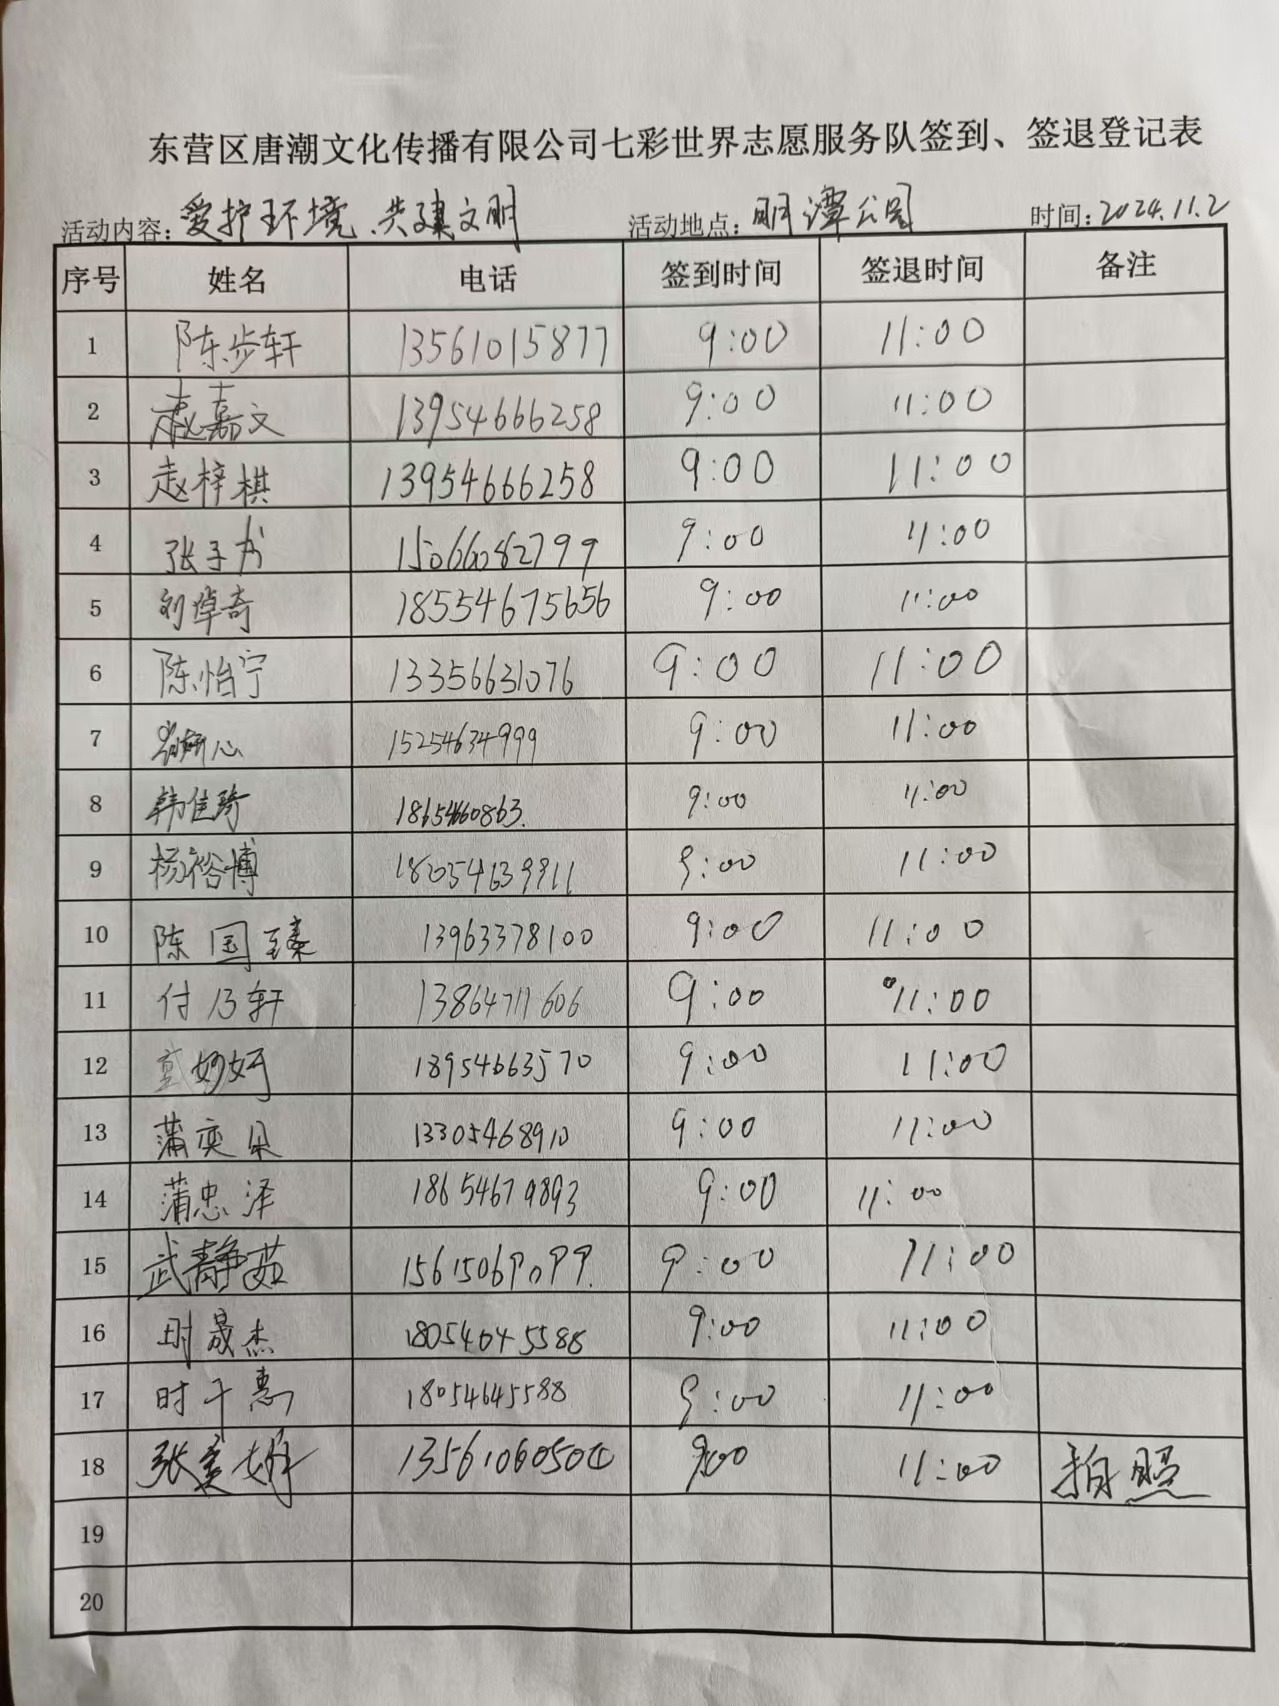 东营区唐潮文化传播有限公司七彩世界志愿服务队签到、签退登记表
活动内容：爱护环境、共建文明 活动地点：明潭公园 时间：2024.11.2
序号 姓名 电话 签到时间 签退时间 备注
1 陈步轩 13561015877 9:00 11:00
2 赵嘉文 13954666258 9:00 11:00
3 赵梓棋 13954666258 9:00 11:00
4 张子 15066082799 9:00 11:00
5 刘倬奇 18554675656 9:00 11:00
6 陈怡宁 13356631076 9:00 11:00
7 15254634999 9:00 11:00
8 韩佳琦 9:00 11:00
9 杨裕博 18054639911 9:00 11:00
10 陈国臻 13963378100 9:00 11:00
11 付乃轩 13864711606 9:00 11:00
12 妙妤 18954663570 9:00 11:00
13 蒲奕朵 13305468910 9:00 11:00
14 蒲忠泽 18654679893 9:00 11:00
15 武静茹 15615069099. 9:00 11:00
16 时晟杰 9:00 11:00
17 时千惠 18054645588 9:00 11:00
18 张 9:00 11:00 拍照
19
20